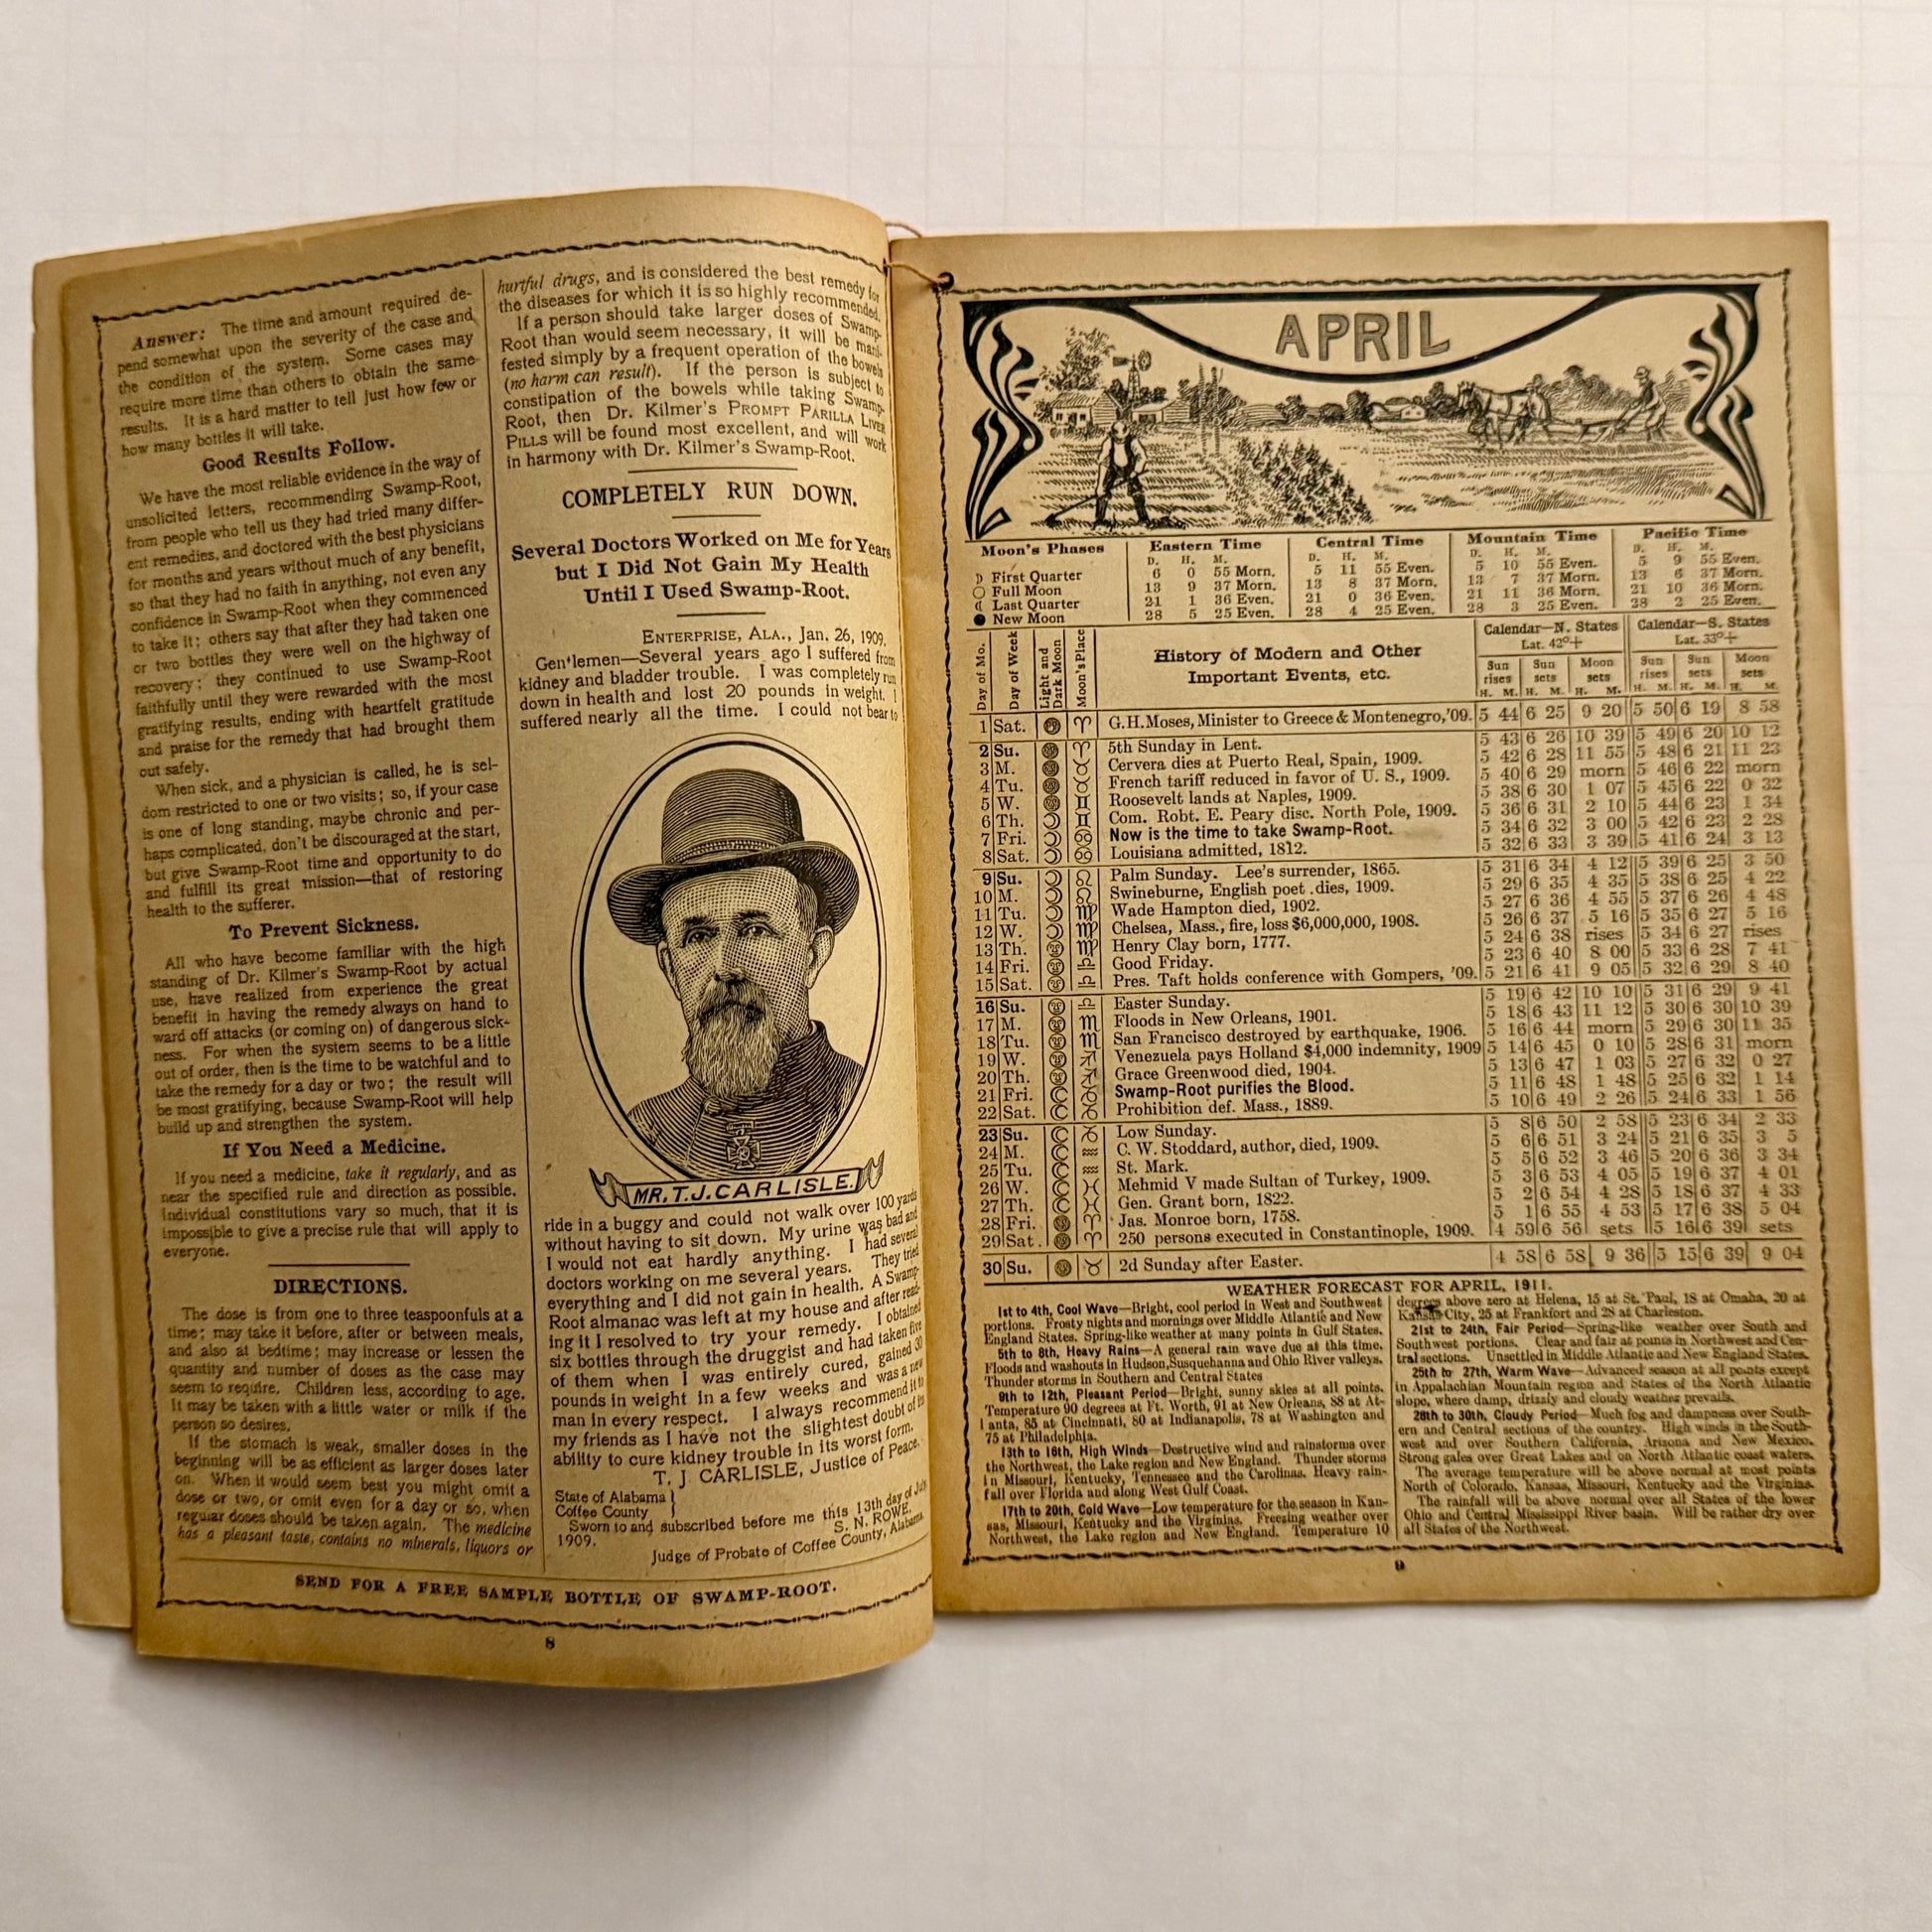 Answer: The time and amount required de-
pend somewhat upon the severity of the case and
the condition of the system. Some cases may
require more time than others to obtain the same
results. It is a hard matter to tell just how few or
how many bottles it will take.
Good Results Follow.
We have the most reliable evidence in the way of
unsolicited letters, recommending Swamp-Root,
from people who tell us they had tried many differ-
ent remedies, and doctored with the best physicians
for months and years without much of any benefit,
so that they had no faith in anything, not even any
confidence in Swamp-Root when they commenced
to take it; others say that after they had taken one
or two bottles they were well on the highway of
recovery; they continued to use Swamp-Root
faithfully until they were rewarded with the most
gratifying results, ending with heartfelt gratitude
and praise for the remedy that had brought them
out safely.
When sick, and a physician is called, he is sel-
dom restricted to one or two visits; so, if your case
is one of long standing, maybe chronic and per-
haps complicated, don't be discouraged at the start,
but give Swamp-Root time and opportunity to do
and fulfill its great mission—that of restoring
health to the sufferer.
To Prevent Sickness.
All who have become familiar with the high
standing of Dr. Kilmer's Swamp-Root by actual
use, have realized from experience the great
benefit in having the remedy always on hand to
ward off attacks (or coming on) of dangerous sick-
ness. For when the system seems to be a little
out of order, then is the time to be watchful and to
take the remedy for a day or two; the result will
be most gratifying, because Swamp-Root will help
build up and strengthen the system.
If You Need a Medicine.
If you need a medicine, take it regularly, and as
near the specified rule and direction as possible.
Individual constitutions vary so much, that it is
impossible to give a precise rule that will apply to
everyone.
DIRECTIONS.
The dose is from one to three teaspoonfuls at a
time; may take it before, after or between meals,
and also at bedtime; may increase or lessen the
quantity and number of doses as the case may
seem to require. Children less, according to age.
It may be taken with a little water or milk if the
person so desires.
If the stomach is weak, smaller doses in the
beginning will be as efficient as larger doses later
on. When it would seem best you might omit a
dose or two, or omit even for a day or so, when
regular doses should be taken again. The medicine
has a pleasant taste, contains no minerals, liquors or
hurtful drugs, and is considered the best remedy for
the diseases for which it is so highly recommended.
If a person should take larger doses of Swamp-
Root than would seem necessary, it will be mani-
fested simply by a frequent operation of the bowels
(no harm can result). If the person is subject to
constipation of the bowels while taking Swamp-
Root, then Dr. Kilmer's PROMPT PARILLA LIVER
PILLS will be found most excellent, and will work
in harmony with Dr. Kilmer's Swamp-Root.
COMPLETELY RUN DOWN.
Several Doctors Worked on Me for Years
but I Did Not Gain My Health
Until I Used Swamp-Root.
ENTERPRISE, ALA., Jan. 26, 1909.
Gen'lemen—Several years ago I suffered from
kidney and bladder trouble. I was completely run
down in health and lost 20 pounds in weight. I
suffered nearly all the time. I could not bear to
MR. T. J. CARLISLE.
ride in a buggy and could not walk over 100 yards
without having to sit down. My urine was bad and
I would not eat hardly anything. I had several
doctors working on me several years. They tried
everything and I did not gain in health. A Swamp-
Root almanac was left at my house and after read-
ing it I resolved to try your remedy. I obtained
six bottles through the druggist and had taken five
of them when I was entirely cured, gained 30
pounds in weight in a few weeks and was a new
man in every respect. I always recommend it to
my friends as I have not the slightest doubt of its
ability to cure kidney trouble in its worst form.
T. J. CARLISLE, Justice of Peace.
State of Alabama }
Coffee County }
Sworn to and subscribed before me this 13th day of July
1909. S. N. ROWE,
Judge of Probate of Coffee County, Alabama.
SEND FOR A FREE SAMPLE BOTTLE OF SWAMP-ROOT.
8
APRIL
Moon's Phases Eastern Time Central Time Mountain Time Pacific Time
D. H. M. D. H. M. D. H. M. D. H. M.
First Quarter 6 0 55 Morn. 5 11 55 Even. 5 10 55 Even. 5 9 55 Even.
Full Moon 13 9 37 Morn. 13 8 37 Morn. 13 7 37 Morn. 13 6 37 Morn.
Last Quarter 21 1 36 Even. 21 0 36 Even. 21 11 36 Morn. 21 10 36 Morn.
New Moon 28 5 25 Even. 28 4 25 Even. 28 3 25 Even. 28 2 25 Even.
Day of Mo. Day of Week Light and Dark Moon Moon's Place
History of Modern and Other
Important Events, etc.
Calendar—N. States Calendar—S. States
Lat. 42°+ Lat. 33°+
Sun rises Sun sets Moon sets Sun rises Sun sets Moon sets
H. M. H. M. H. M. H. M. H. M. H. M.
1 Sat. ♈ G. H. Moses, Minister to Greece & Montenegro, '09. 5 44 6 25 9 20 5 50 6 19 8 58
2 Su. ♈ 5th Sunday in Lent. 5 43 6 26 10 39 5 49 6 20 10 12
3 M. ♉ Cervera dies at Puerto Real, Spain, 1909. 5 42 6 28 11 55 5 48 6 21 11 23
4 Tu. ♉ French tariff reduced in favor of U. S., 1909. 5 40 6 29 morn 5 46 6 22 morn
5 W. ♊ Roosevelt lands at Naples, 1909. 5 38 6 30 1 07 5 45 6 22 0 32
6 Th. ♊ Com. Robt. E. Peary disc. North Pole, 1909. 5 36 6 31 2 10 5 44 6 23 1 34
7 Fri. ♋ Now is the time to take Swamp-Root. 5 34 6 32 3 00 5 42 6 23 2 28
8 Sat. ♋ Louisiana admitted, 1812. 5 32 6 33 3 39 5 41 6 24 3 13
9 Su. ♌ Palm Sunday. Lee's surrender, 1865. 5 31 6 34 4 12 5 39 6 25 3 50
10 M. ♌ Swineburne, English poet .dies, 1909. 5 29 6 35 4 35 5 38 6 25 4 22
11 Tu. ♍ Wade Hampton died, 1902. 5 27 6 36 4 55 5 37 6 26 4 48
12 W. ♍ Chelsea, Mass., fire, loss $6,000,000, 1908. 5 26 6 37 5 16 5 35 6 27 5 16
13 Th. ♍ Henry Clay born, 1777. 5 24 6 38 rises 5 34 6 27 rises
14 Fri. ♎ Good Friday. 5 23 6 40 8 00 5 33 6 28 7 41
15 Sat. ♎ Pres. Taft holds conference with Gompers, '09. 5 21 6 41 9 05 5 32 6 29 8 40
16 Su. ♎ Easter Sunday. 5 19 6 42 10 10 5 31 6 29 9 41
17 M. ♏ Floods in New Orleans, 1901. 5 18 6 43 11 12 5 30 6 30 10 39
18 Tu. ♏ San Francisco destroyed by earthquake, 1906. 5 16 6 44 morn 5 29 6 30 11 35
19 W. ♐ Venezuela pays Holland $4,000 indemnity, 1909 5 14 6 45 0 10 5 28 6 31 morn
20 Th. ♐ Grace Greenwood died, 1904. 5 13 6 47 1 03 5 27 6 32 0 27
21 Fri. ♑ Swamp-Root purifies the Blood. 5 11 6 48 1 48 5 25 6 32 1 14
22 Sat. ♑ Prohibition def. Mass., 1889. 5 10 6 49 2 26 5 24 6 33 1 56
23 Su. ♑ Low Sunday. 5 8 6 50 2 58 5 23 6 34 2 33
24 M. ♒ C. W. Stoddard, author, died, 1909. 5 6 6 51 3 24 5 21 6 35 3 5
25 Tu. ♒ St. Mark. 5 5 6 52 3 46 5 20 6 36 3 34
26 W. ♓ Mehmid V made Sultan of Turkey, 1909. 5 3 6 53 4 05 5 19 6 37 4 01
27 Th. ♓ Gen. Grant born, 1822. 5 2 6 54 4 28 5 18 6 37 4 33
28 Fri. ♈ Jas. Monroe born, 1758. 5 1 6 55 4 53 5 17 6 38 5 04
29 Sat. ♈ 250 persons executed in Constantinople, 1909. 4 59 6 56 sets 5 16 6 39 sets
30 Su. ♉ 2d Sunday after Easter. 4 58 6 58 9 36 5 15 6 39 9 04
WEATHER FORECAST FOR APRIL, 1911.
1st to 4th, Cool Wave—Bright, cool period in West and Southwest
portions. Frosty nights and mornings over Middle Atlantic and New
England States. Spring-like weather at many points in Gulf States.
5th to 8th, Heavy Rains—A general rain wave due at this time.
Floods and washouts in Hudson, Susquehanna and Ohio River valleys.
Thunder storms in Southern and Central States
9th to 12th, Pleasant Period—Bright, sunny skies at all points.
Temperature 90 degrees at Ft. Worth, 91 at New Orleans, 88 at At-
lanta, 85 at Cincinnati, 80 at Indianapolis, 78 at Washington and
75 at Philadelphia.
13th to 16th, High Winds—Destructive wind and rainstorms over
the Northwest, the Lake region and New England. Thunder storms
in Missouri, Kentucky, Tennessee and the Carolinas. Heavy rain-
fall over Florida and along West Gulf Coast.
17th to 20th, Cold Wave—Low temperature for the season in Kan-
sas, Missouri, Kentucky and the Virginias. Freezing weather over
Northwest, the Lake region and New England. Temperature 10
degrees above zero at Helena, 15 at St. Paul, 18 at Omaha, 20 at
Kansas City, 25 at Frankfort and 28 at Charleston.
21st to 24th, Fair Period—Spring-like weather over South and
Southwest portions. Clear and fair at points in Northwest and Cen-
tral sections. Unsettled in Middle Atlantic and New England States.
25th to 27th, Warm Wave—Advanced season at all points except
in Appalachian Mountain region and States of the North Atlantic
slope, where damp, drizzly and cloudy weather prevails.
28th to 30th, Cloudy Period—Much fog and dampness over South-
ern and Central sections of the country. High winds in the South-
west and over Southern California, Arizona and New Mexico.
Strong gales over Great Lakes and on North Atlantic coast waters.
The average temperature will be above normal at most points
North of Colorado, Kansas, Missouri, Kentucky and the Virginias.
The rainfall will be above normal over all States of the lower
Ohio and Central Mississippi River basin. Will be rather dry over
all States of the Northwest.
9